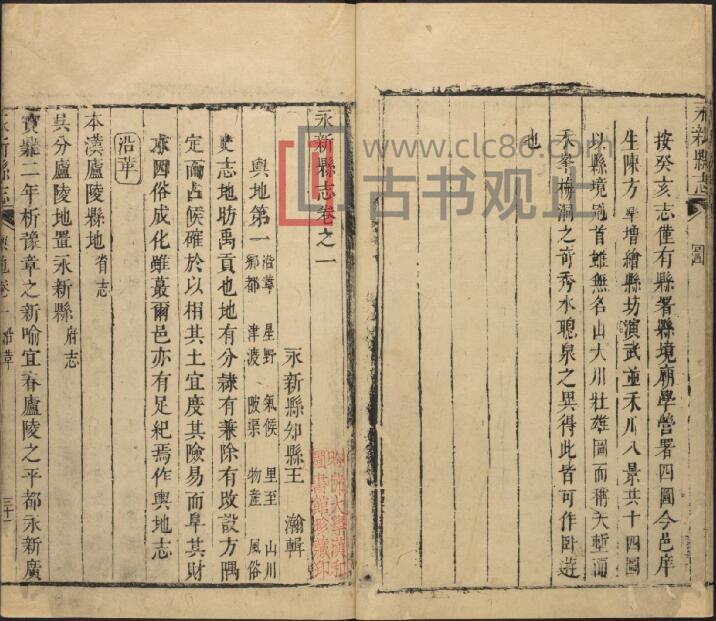 永新縣志 圖
按癸亥志僅有縣署縣境廟學營署四圖今邑庠
生陳方 增繪縣坊演武並禾川八景共十四圖
以縣境冠首雖無名山大川壯雄圖而稱天塹而
禾峯梅洞之奇秀水聰泉之異得此皆可作臥遊
也
永新縣志卷之一
永新縣知縣王 瀚輯
輿地第一 沿革 星野 氣候 里至 山川
鄉都 津渡 陂渠 物產 風俗
史志地昉禹貢也地有分隸有兼除有攺設方隅
定而占候確於以相其土宜度其險易而阜其財
求因俗成化雖蕞爾邑亦有足紀焉作輿地志
沿革
本漢廬陵縣地 省志
吳分廬陵地置永新縣 府志
寶鼎二年析豫章之新喻宜春廬陵之平都永新廣
永新縣志 輿地卷一 沿革 三十一
哈佛大學漢和
圖書館珍藏印
www.clc86.com
古书观止